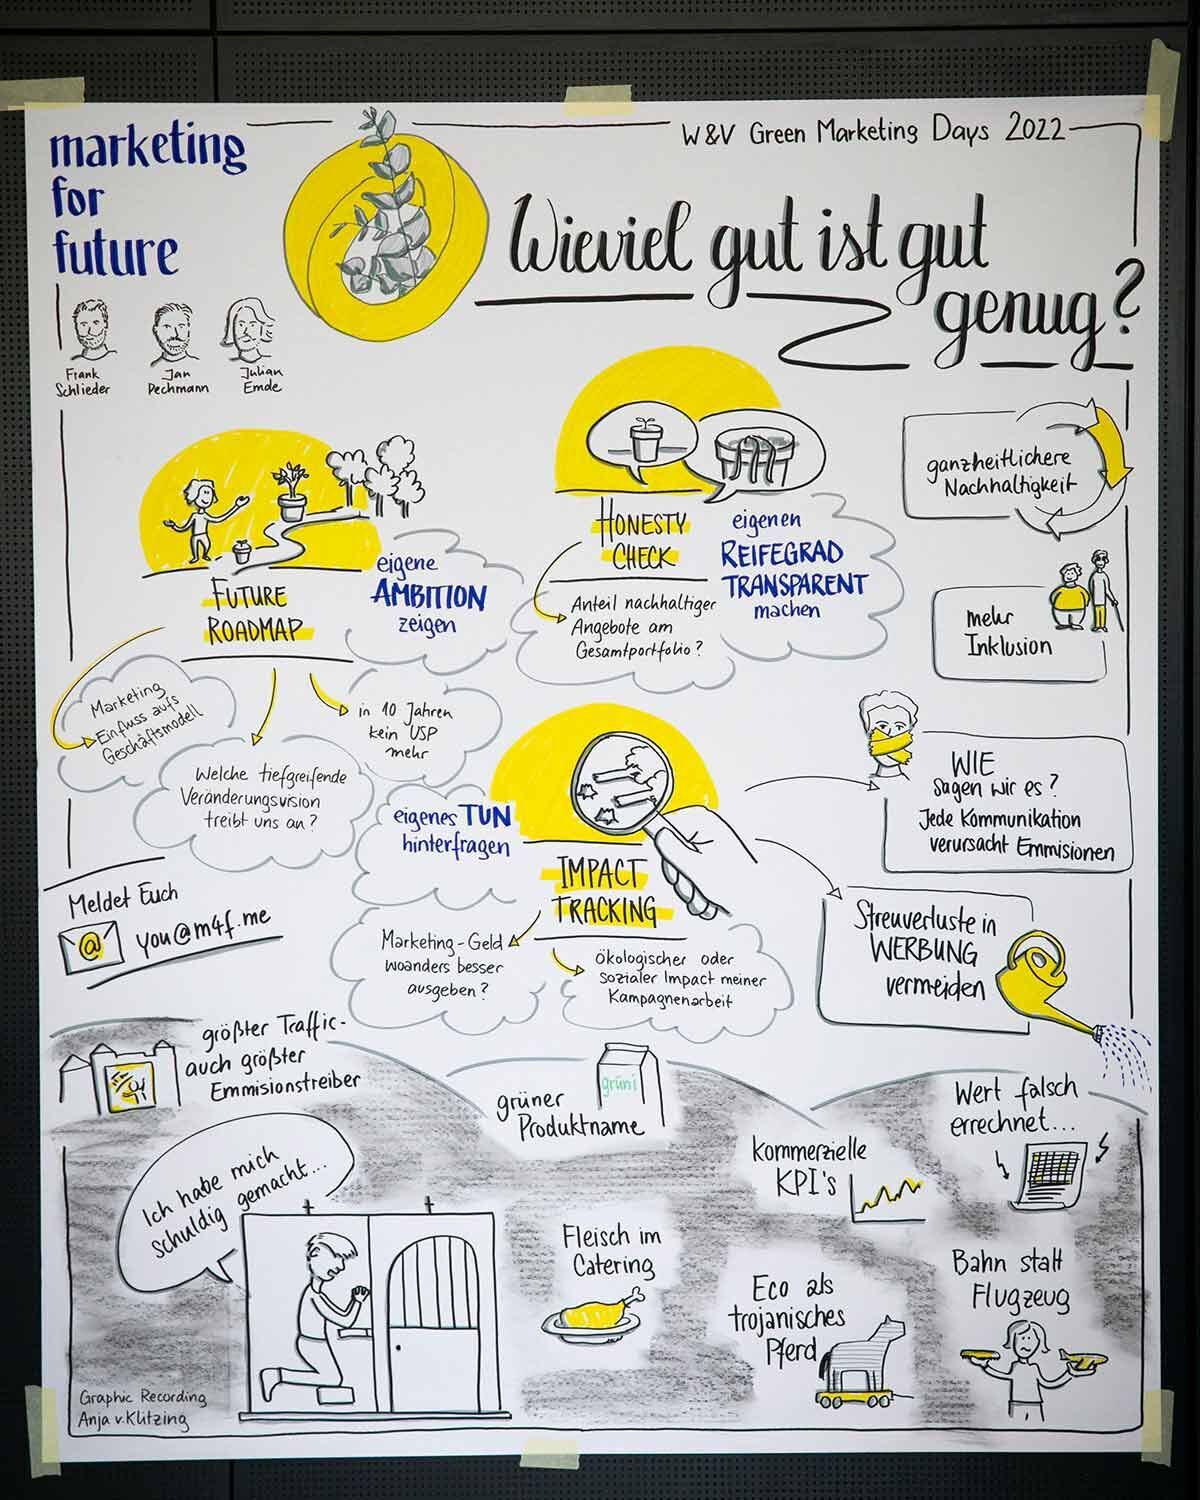 marketing
for
future
W&V Green Marketing Days 2022
Wieviel gut ist gut
genug?
Frank
Schlieder
Jan
Pechmann
Julian
Emde
FUTURE
ROADMAP
eigene
AMBITION
zeigen
Marketing
Einfluss aufs
Geschäftsmodell
Welche tiefgreifende
Veränderungsvision
treibt uns an?
in 10 Jahren
kein USP
mehr
HONESTY
CHECK
eigenen
REIFEGRAD
TRANSPARENT
machen
Anteil nachhaltiger
Angebote am
Gesamtportfolio?
ganzheitlichere
Nachhaltigkeit
mehr
Inklusion
eigenes TUN
hinterfragen
IMPACT
TRACKING
Marketing-Geld
woanders besser
ausgeben?
ökologischer oder
sozialer Impact meiner
Kampagnenarbeit
WIE
sagen wir es?
Jede Kommunikation
verursacht Emmisionen
Streuverluste in
WERBUNG
vermeiden
Meldet Euch
@
you@m4f.me
größter Traffic-
auch größter
Emmisionstreiber
grün!
grüner
Produktname
Wert falsch
errechnet...
kommerzielle
KPI's
Ich habe mich
schuldig gemacht...
Fleisch im
Catering
Eco als
trojanisches
Pferd
Bahn statt
Flugzeug
Graphic Recording
Anja v.Klitzing